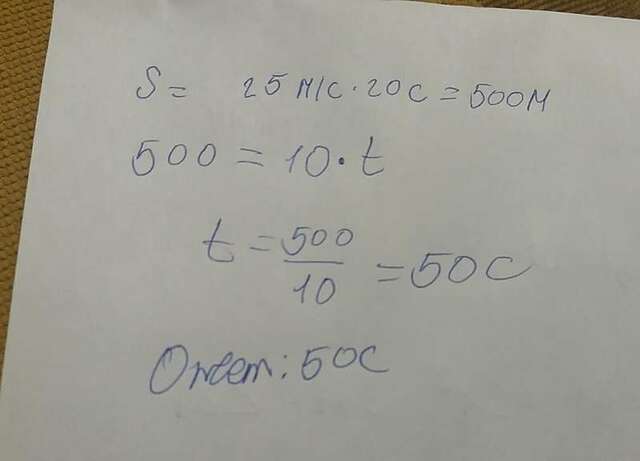 S = 25 м/с · 20 с = 500 м
500 = 10 · t
t = 500/10 = 50 с
Ответ: 50 с